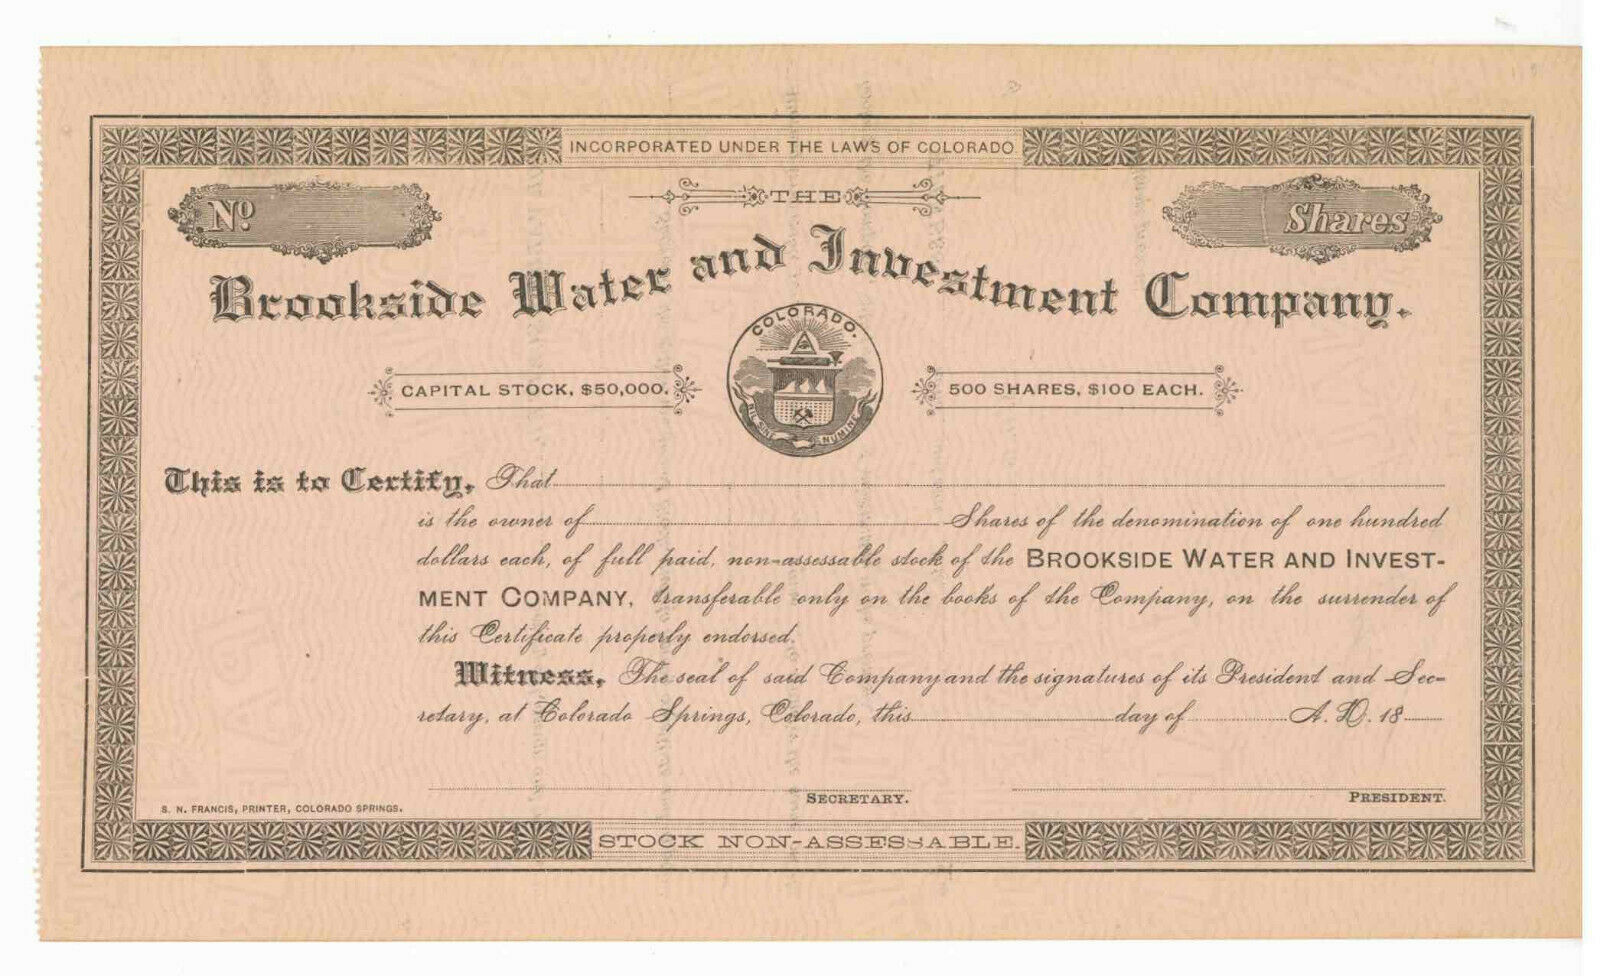 INCORPORATED UNDER THE LAWS OF COLORADO
THE
No.
Shares
Brookside Water and Investment Company.
COLORADO.
CAPITAL STOCK, $50,000.
500 SHARES, $100 EACH.
NIL SINE NUMINE
This is to Certify, That
is the owner of Shares of the denomination of one hundred
dollars each, of full paid, non-assessable stock of the BROOKSIDE WATER AND INVEST-
MENT COMPANY, transferable only on the books of the Company, on the surrender of
this Certificate properly endorsed.
Witness, The seal of said Company and the signatures of its President and Sec-
retary, at Colorado Springs, Colorado, this day of A. D. 18
SECRETARY.
PRESIDENT.
S. N. FRANCIS, PRINTER, COLORADO SPRINGS.
STOCK NON-ASSESSABLE.